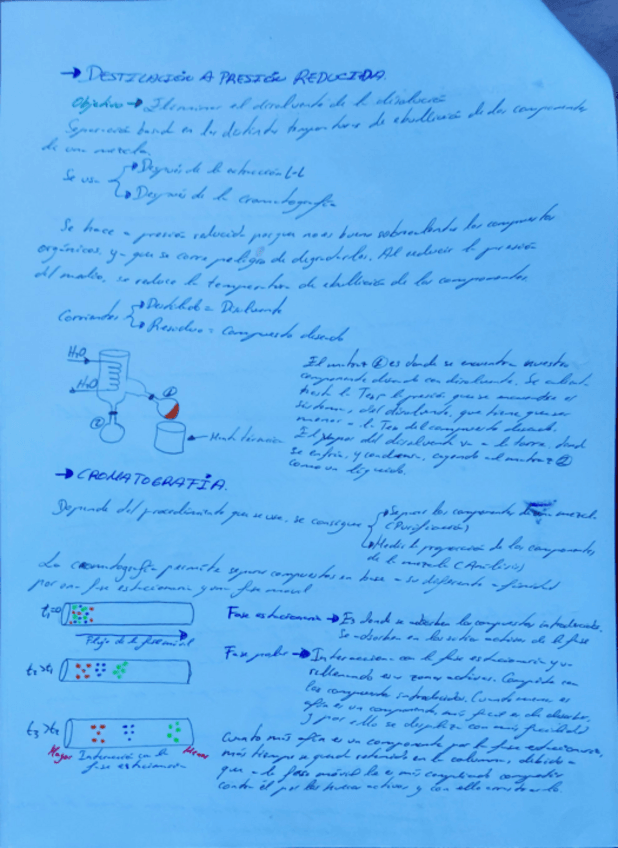 → DESTILACIÓN A PRESIÓN REDUCIDA.
Objetivo → Eliminar el disolvente de la disolución
Separación basada en las distintas temperaturas de ebullición de los componentes
de una mezcla.
Se usa
→ Después de la extracción L-L
→ Después de la cromatografía
Se hace a presión reducida porque no es bueno sobrecalentar los compuestos
orgánicos, ya que se corre peligro de degradarlos. Al reducir la presión
del medio, se reduce la temperatura de ebullición de los componentes
Corrientes
→ Destilado = Disolvente
→ Residuo = Compuesto deseado
H2O
H2O
①
②
→ Manta térmica
El matraz ① es donde se encuentra nuestro
componente deseado con disolvente. Se calienta
hasta la Teb, a la presión que se encuentra el
sistema, del disolvente, que tiene que ser
menor a la Teb del compuesto deseado.
El vapor del disolvente va a la torre, donde
se enfría, y condensa, cayendo al matraz ②
como un líquido.
→ CROMATOGRAFÍA.
Depende del procedimiento que se use, se consigue
→ Separar los componentes de una mezcla
(Purificación)
→ Medir la proporción de los componentes
de la mezcla (Análisis)
La cromatografía permite separar compuestos en base a su diferente afinidad
por una fase estacionaria y una fase móvil
t1=0
Flujo de la fase móvil
t2>t1
t3>t2
Mayor Interacción con la Menor
fase estacionaria
Fase estacionaria → Es donde se adsorben los compuestos introducidos.
Se adsorben en los sitios activos de la fase
Fase → Interacciona con la fase estacionaria y va
rellenando esas zonas activas. Compite con
los compuestos introducidos. Cuanto menos
afín es un componente más fácil es de
y por ello se desplaza con más facilidad
Cuanto más afín es un componente por la fase estacionaria,
más tiempo se queda retenido en la columna, debido a
que a la fase móvil le es más complicado competir
contra él por los huecos activos y con ello